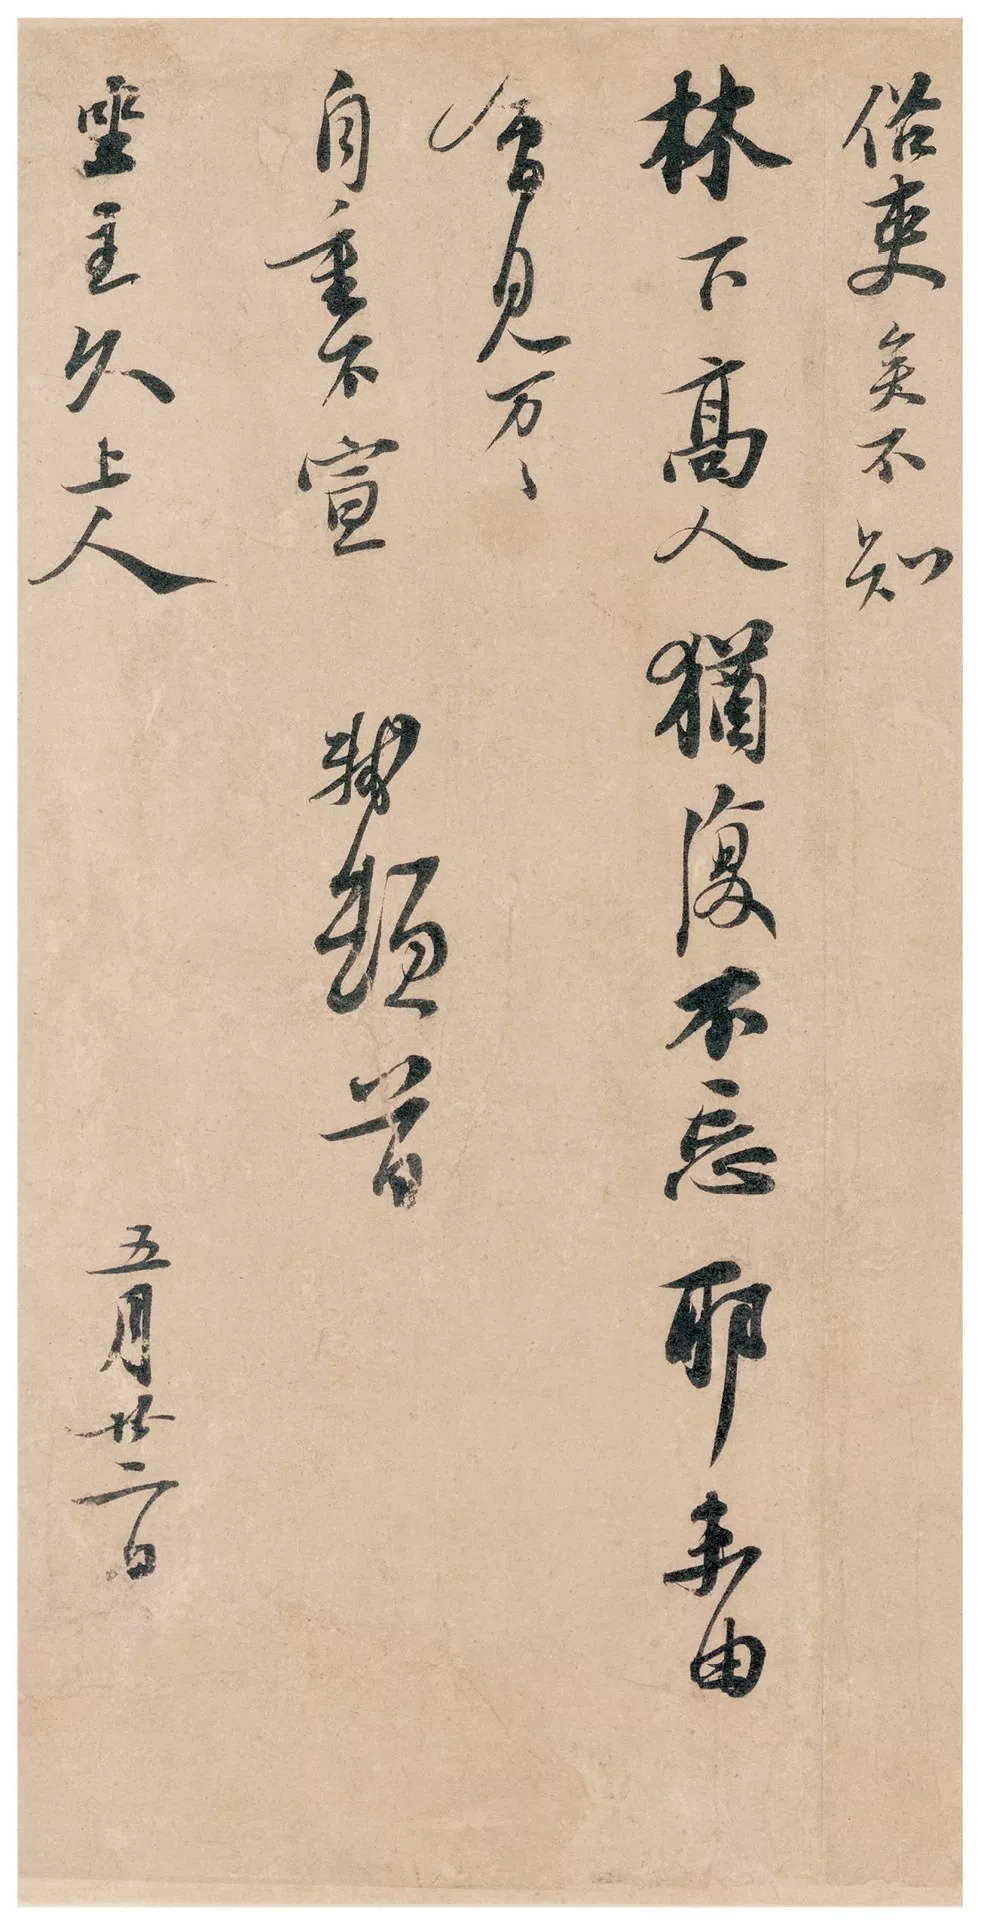 俗吏矣不知
林下高人猶復不忘耶未由
會見万〻
自重不宣 軾頓首
坐主久上人
五月廿二日